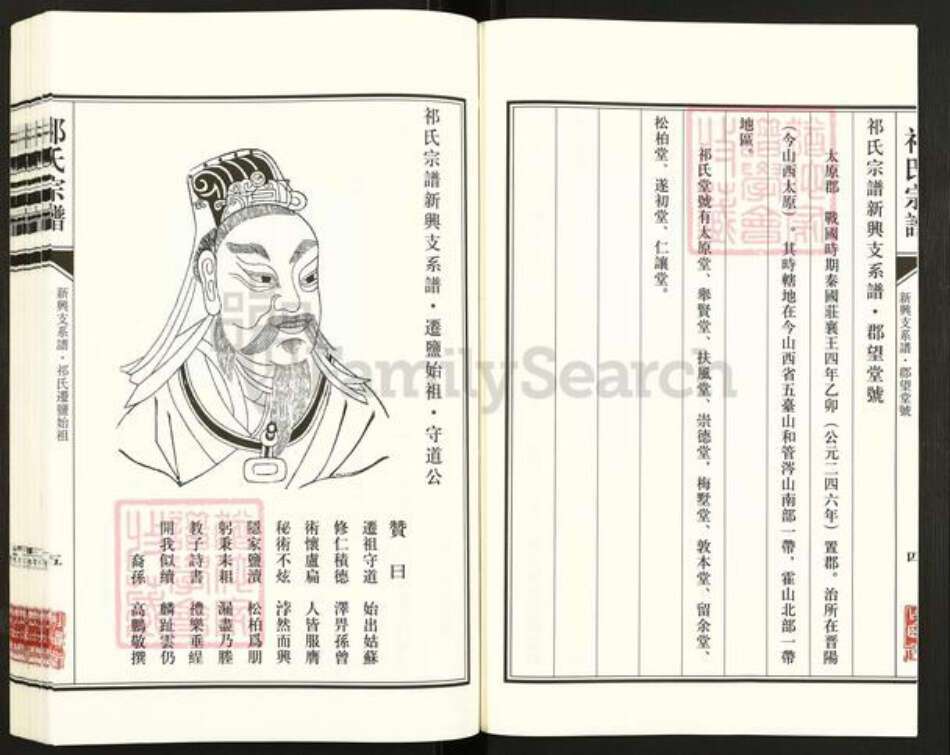 祁氏宗譜
新興支系譜·郡望堂號
四
祁氏宗譜新興支系譜·郡望堂號
太原郡 戰國時期秦國莊襄王四年乙卯（公元二四六年）置郡。治所在晋陽
（今山西太原）。其時轄地在今山西省五臺山和管涔山南部一帶，霍山北部一帶
地區。
祁氏堂號有太原堂、舉賢堂、扶風堂、崇德堂、梅墅堂、敦本堂、留余堂、
松柏堂、遂初堂、仁讓堂。
祁氏宗譜新興支系譜·遷鹽始祖·守道公
贊曰
遷祖守道 始出姑蘇
修仁積德 澤畀孫曾
術懷盧扁 人皆服膺
秘術不炫 浡然而興
隱家鹽瀆 松柏爲朋
躬秉耒耜 漏盡乃塍
教子詩書 禮樂垂緹
開我似續 麟趾雲仍
裔孫 高鵬敬撰
祁氏宗譜
新興支系譜·祁氏遷鹽始祖
五
FamilySearch